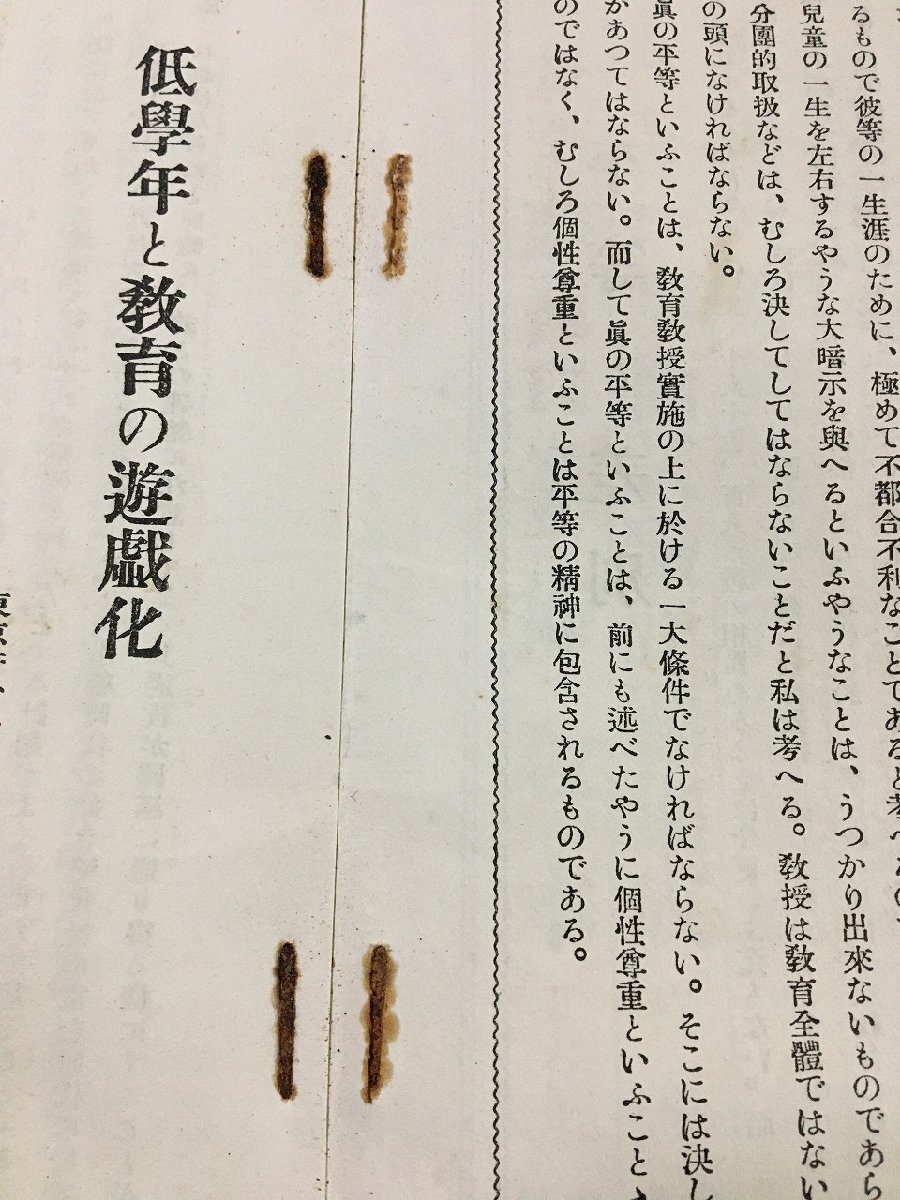 るもので彼等の一生涯のために、極めて不都合不利なことであると考へるので、
兒童の一生を左右するやうな大暗示を與へるといふやうなことは、うつかり出來ないものであら
分團的取扱などは、むしろ決してしてはならないことだと私は考へる。敎授は敎育全體ではない
の頭になければならない。
眞の平等といふことは、敎育敎授實施の上に於ける一大條件でなければならない。そこには決し
があつてはならない。而して眞の平等といふことは、前にも述べたやうに個性尊重といふことゝ
のではなく、むしろ個性尊重といふことは平等の精神に包含されるものである。
低學年と敎育の遊戲化
東京